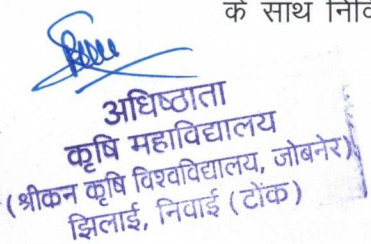 के साथ
अधिष्ठाता
कृषि महाविद्यालय
(श्रीकन कृषि विश्वविद्यालय, जोबनेर)
झिलाई, निवाई (टोंक)